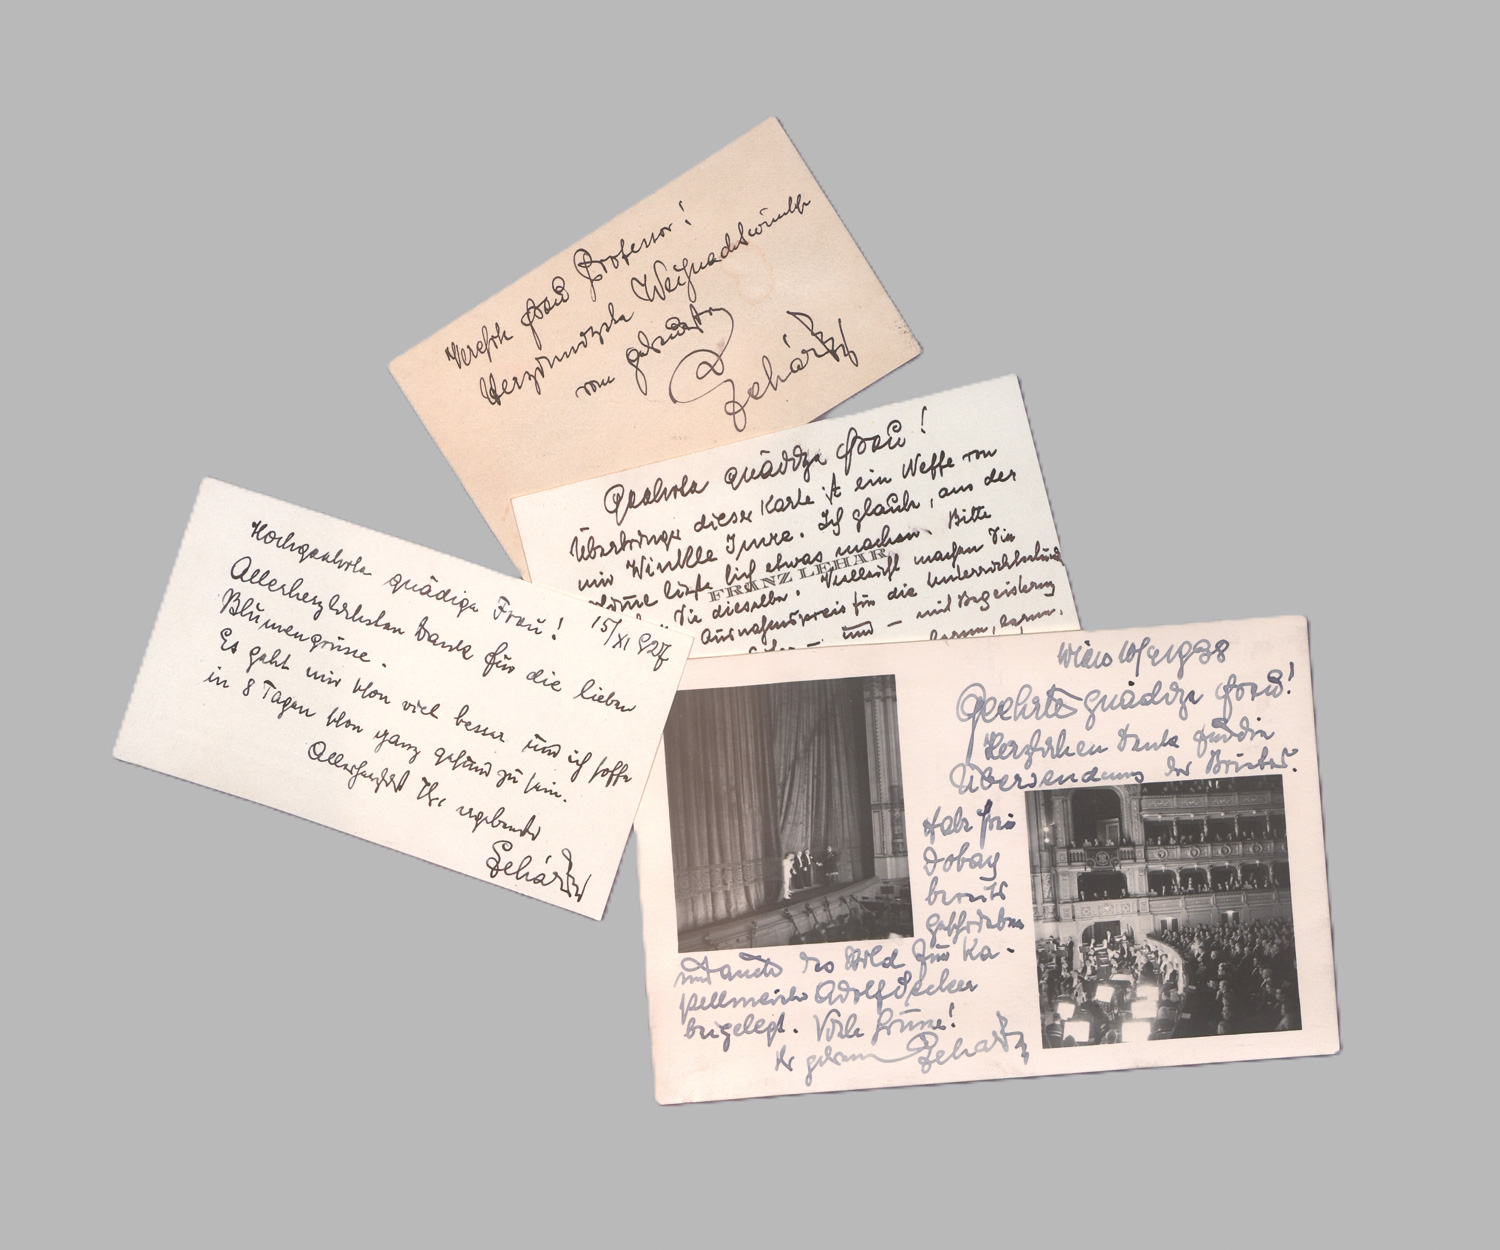 Verehrte Frau Professor!
Herzinnigste Weihnachtswünsche
vom getreuen
Lehár
Geehrte gnädige Frau!
Überbringer dieser Karte ist ein Neffe von
mir Winkler Imre. Ich glaube, aus der
Stimme ließe sich etwas machen. Bitte
FRANZ LEHÁR
Sie dieselbe. Vielleicht machen Sie
Ausnahmspreis für die Unterrichtsstunden
und – mit Begeisterung
lernen, lernen.
Hochgeehrte gnädige Frau!
15/XI 927
Allerherzlichsten Dank für die lieben
Blumengrüsse.
Es geht mir schon viel besser und ich hoffe
in 8 Tagen schon ganz gesund zu sein.
Allerherzlichst Ihr ergebenster
Lehár
Wien 1938
Geehrte gnädige Frau!
Herzlichen Dank für die
Übersendung der Bilder.
Habe Frau
Dobay
bereits
geschrieben
und auch das Bild für Ka-
pellmeister Adolf Secker
beigelegt. Viele Grüsse!
Ihr getreuer Lehár